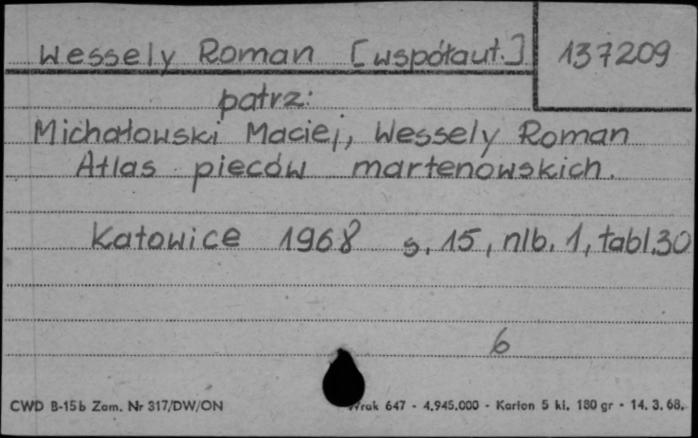 Wessely Roman [współaut.] 137209
patrz:
Michałowski Maciej, Wessely Roman
Atlas pieców martenowskich.
Katowice 1968 s. 15, nlb. 1, tabl. 30
6
CWD B-15b Zam. Nr 317/DW/ON 647 - 4.945.000 - Karton 5 kl. 180 gr - 14. 3. 68.